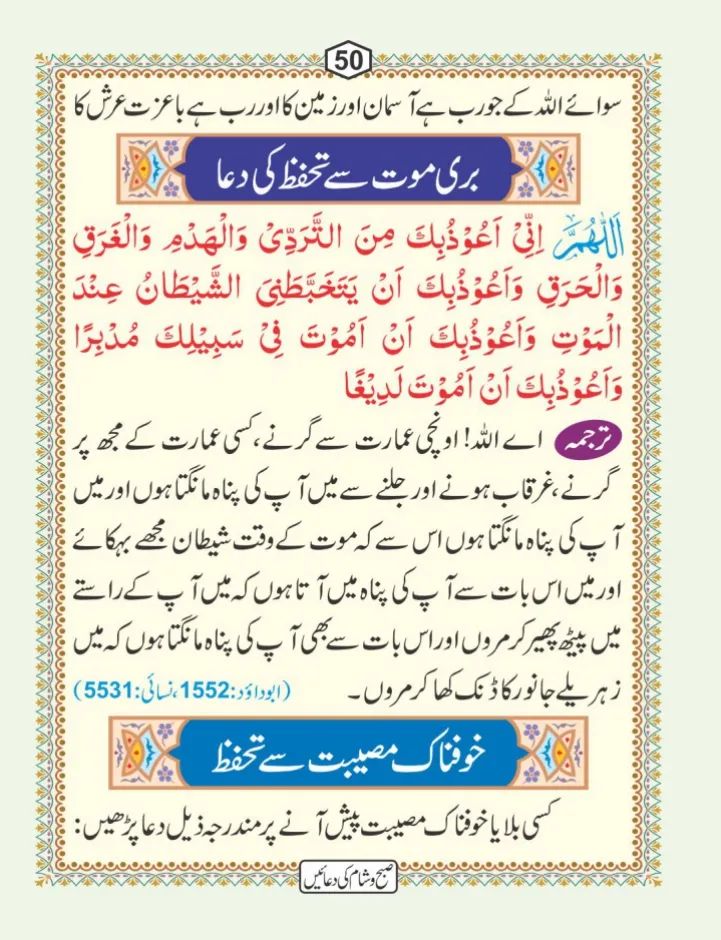 50
سوائے اللہ کے جو رب ہے آسمان اور زمین کا اور رب ہے باعزت عرش کا
بری موت سے تحفظ کی دعا
اَللّٰهُمَّ اِنِّیْ اَعُوْذُبِكَ مِنَ التَّرَدِّیْ وَالْهَدْمِ وَالْغَرَقِ
وَالْحَرَقِ وَاَعُوْذُبِكَ اَنْ یَتَخَبَّطَنِیَ الشَّیْطَانُ عِنْدَ
الْمَوْتِ وَاَعُوْذُبِكَ اَنْ اَمُوْتَ فِیْ سَبِیْلِكَ مُدْبِرًا
وَاَعُوْذُبِكَ اَنْ اَمُوْتَ لَدِیْغًا
ترجمہ اے اللہ! اونچی عمارت سے گرنے، کسی عمارت کے مجھ پر
گرنے، غرقاب ہونے اور جلنے سے میں آپ کی پناہ مانگتا ہوں اور میں
آپ کی پناہ مانگتا ہوں اس سے کہ موت کے وقت شیطان مجھے بہکائے
اور میں اس بات سے آپ کی پناہ میں آتا ہوں کہ میں آپ کے راستے
میں پیٹھ پھیر کر مروں اور اس بات سے بھی آپ کی پناہ مانگتا ہوں کہ میں
زہریلے جانور کا ڈنک کھا کر مروں۔ (ابوداؤد:1552، نسائی:5531)
خوفناک مصیبت سے تحفظ
کسی بلا یا خوفناک مصیبت پیش آنے پر مندرجہ ذیل دعا پڑھیں:
صبح و شام کی دعائیں